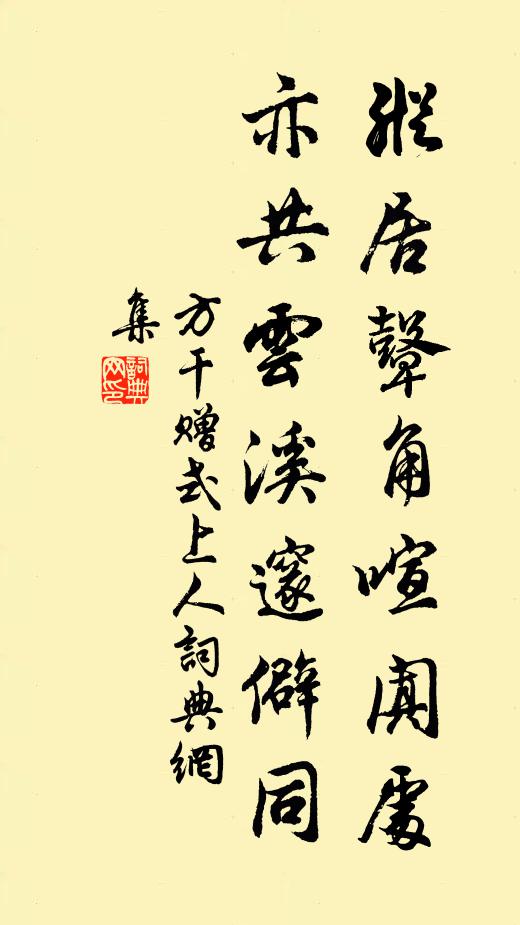 縱居鼙角喧闐處
亦共雲溪邃僻同
方干贈式上人詞典網
集
詞典
网印